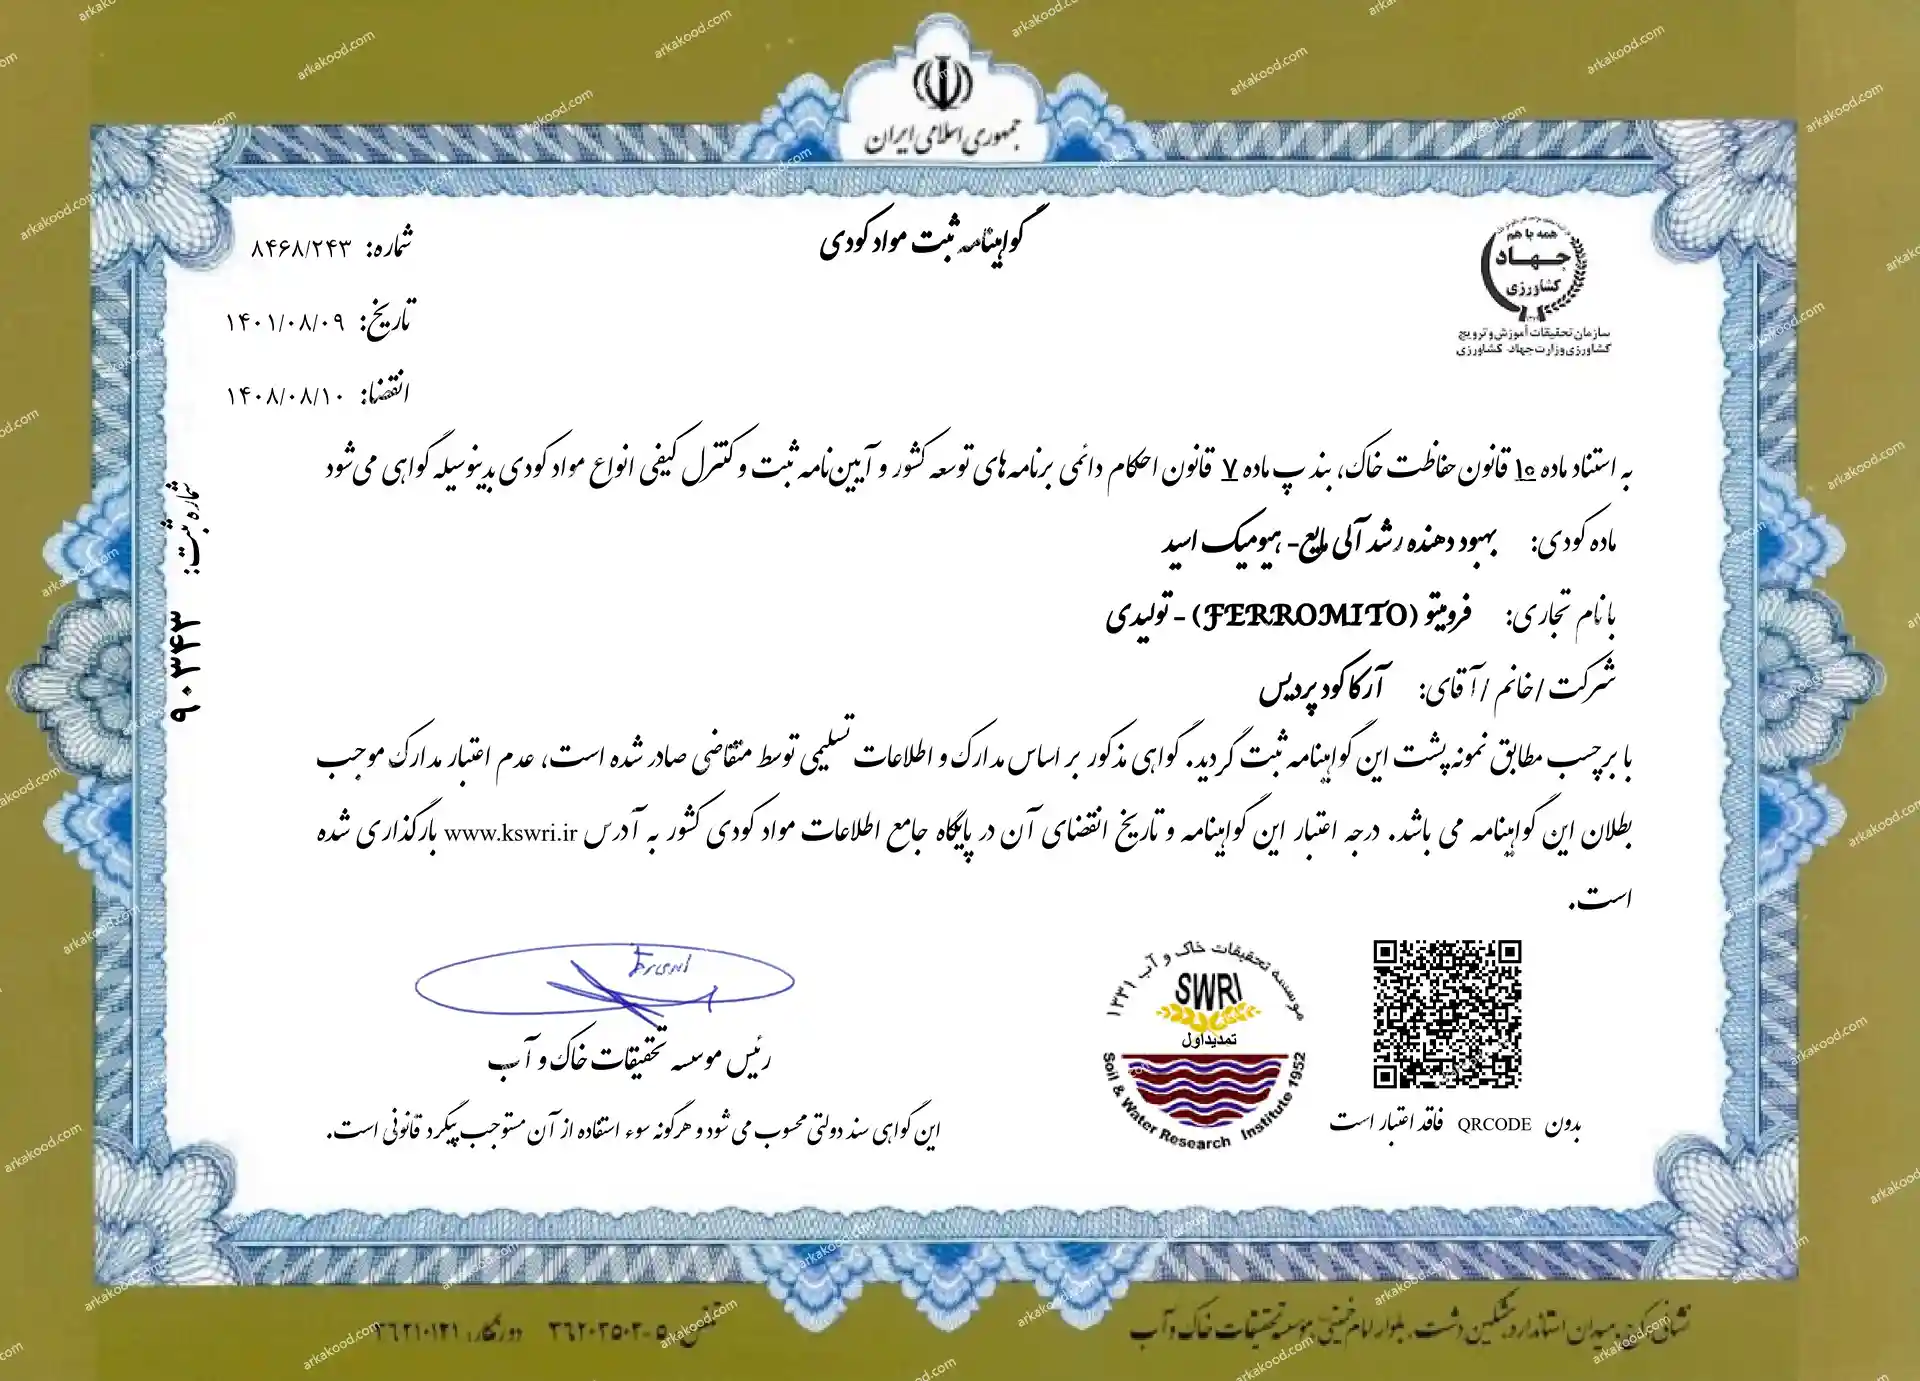 جمهوری اسلامی ایران
همه با هم
جهاد
کشاورزی
سازمان تحقیقات آموزش و ترویج
کشاورزی وزارت جهاد کشاورزی
گواهینامه ثبت مواد کودی
شماره: ۸۴۶۸/۲۴۳
تاریخ: ۱۴۰۱/۰۸/۰۹
انقضا: ۱۴۰۸/۰۸/۱۰
شماره ثبت: ۹۰۳۴۳
به استناد ماده ۱۰ قانون حفاظت خاک، بند پ ماده ۷ قانون احکام دائمی برنامه‌های توسعه کشور و آیین‌نامه ثبت و کنترل کیفی انواع مواد کودی بدینوسیله گواهی می‌شود
ماده کودی: بهبود دهنده رشد آلی مایع- هیومیک اسید
با نام تجاری: فرومیتو (FERROMITO) - تولیدی
شرکت /خانم /آقای: آرکا کود پردیس
با برچسب مطابق نمونه پشت این گواهینامه ثبت گردید. گواهی مذکور بر اساس مدارک و اطلاعات تسلیمی توسط متقاضی صادر شده است، عدم اعتبار مدارک موجب
بطلان این گواهینامه می باشد. درجه اعتبار این گواهینامه و تاریخ انقضای آن در پایگاه جامع اطلاعات مواد کودی کشور به آدرس www.kswri.ir بارگذاری شده
است.
موسسه تحقیقات خاک و آب ۱۳۳۱
SWRI
تمدیداول
Soil & Water Research Institute 1952
بدون QRCODE فاقد اعتبار است
رئیس موسسه تحقیقات خاک و آب
این گواهی سند دولتی محسوب می شود و هرگونه سوء استفاده از آن مستوجب پیگرد قانونی است.
نشانی: کرج، میدان استاندارد، مشکین دشت، بلوار امام خمینی، موسسه تحقیقات خاک و آب
تلفن: ۵-۳۶۲۰۳۵۰۲ دورنگار: ۳۶۲۱۰۱۲۱
arkakood.com